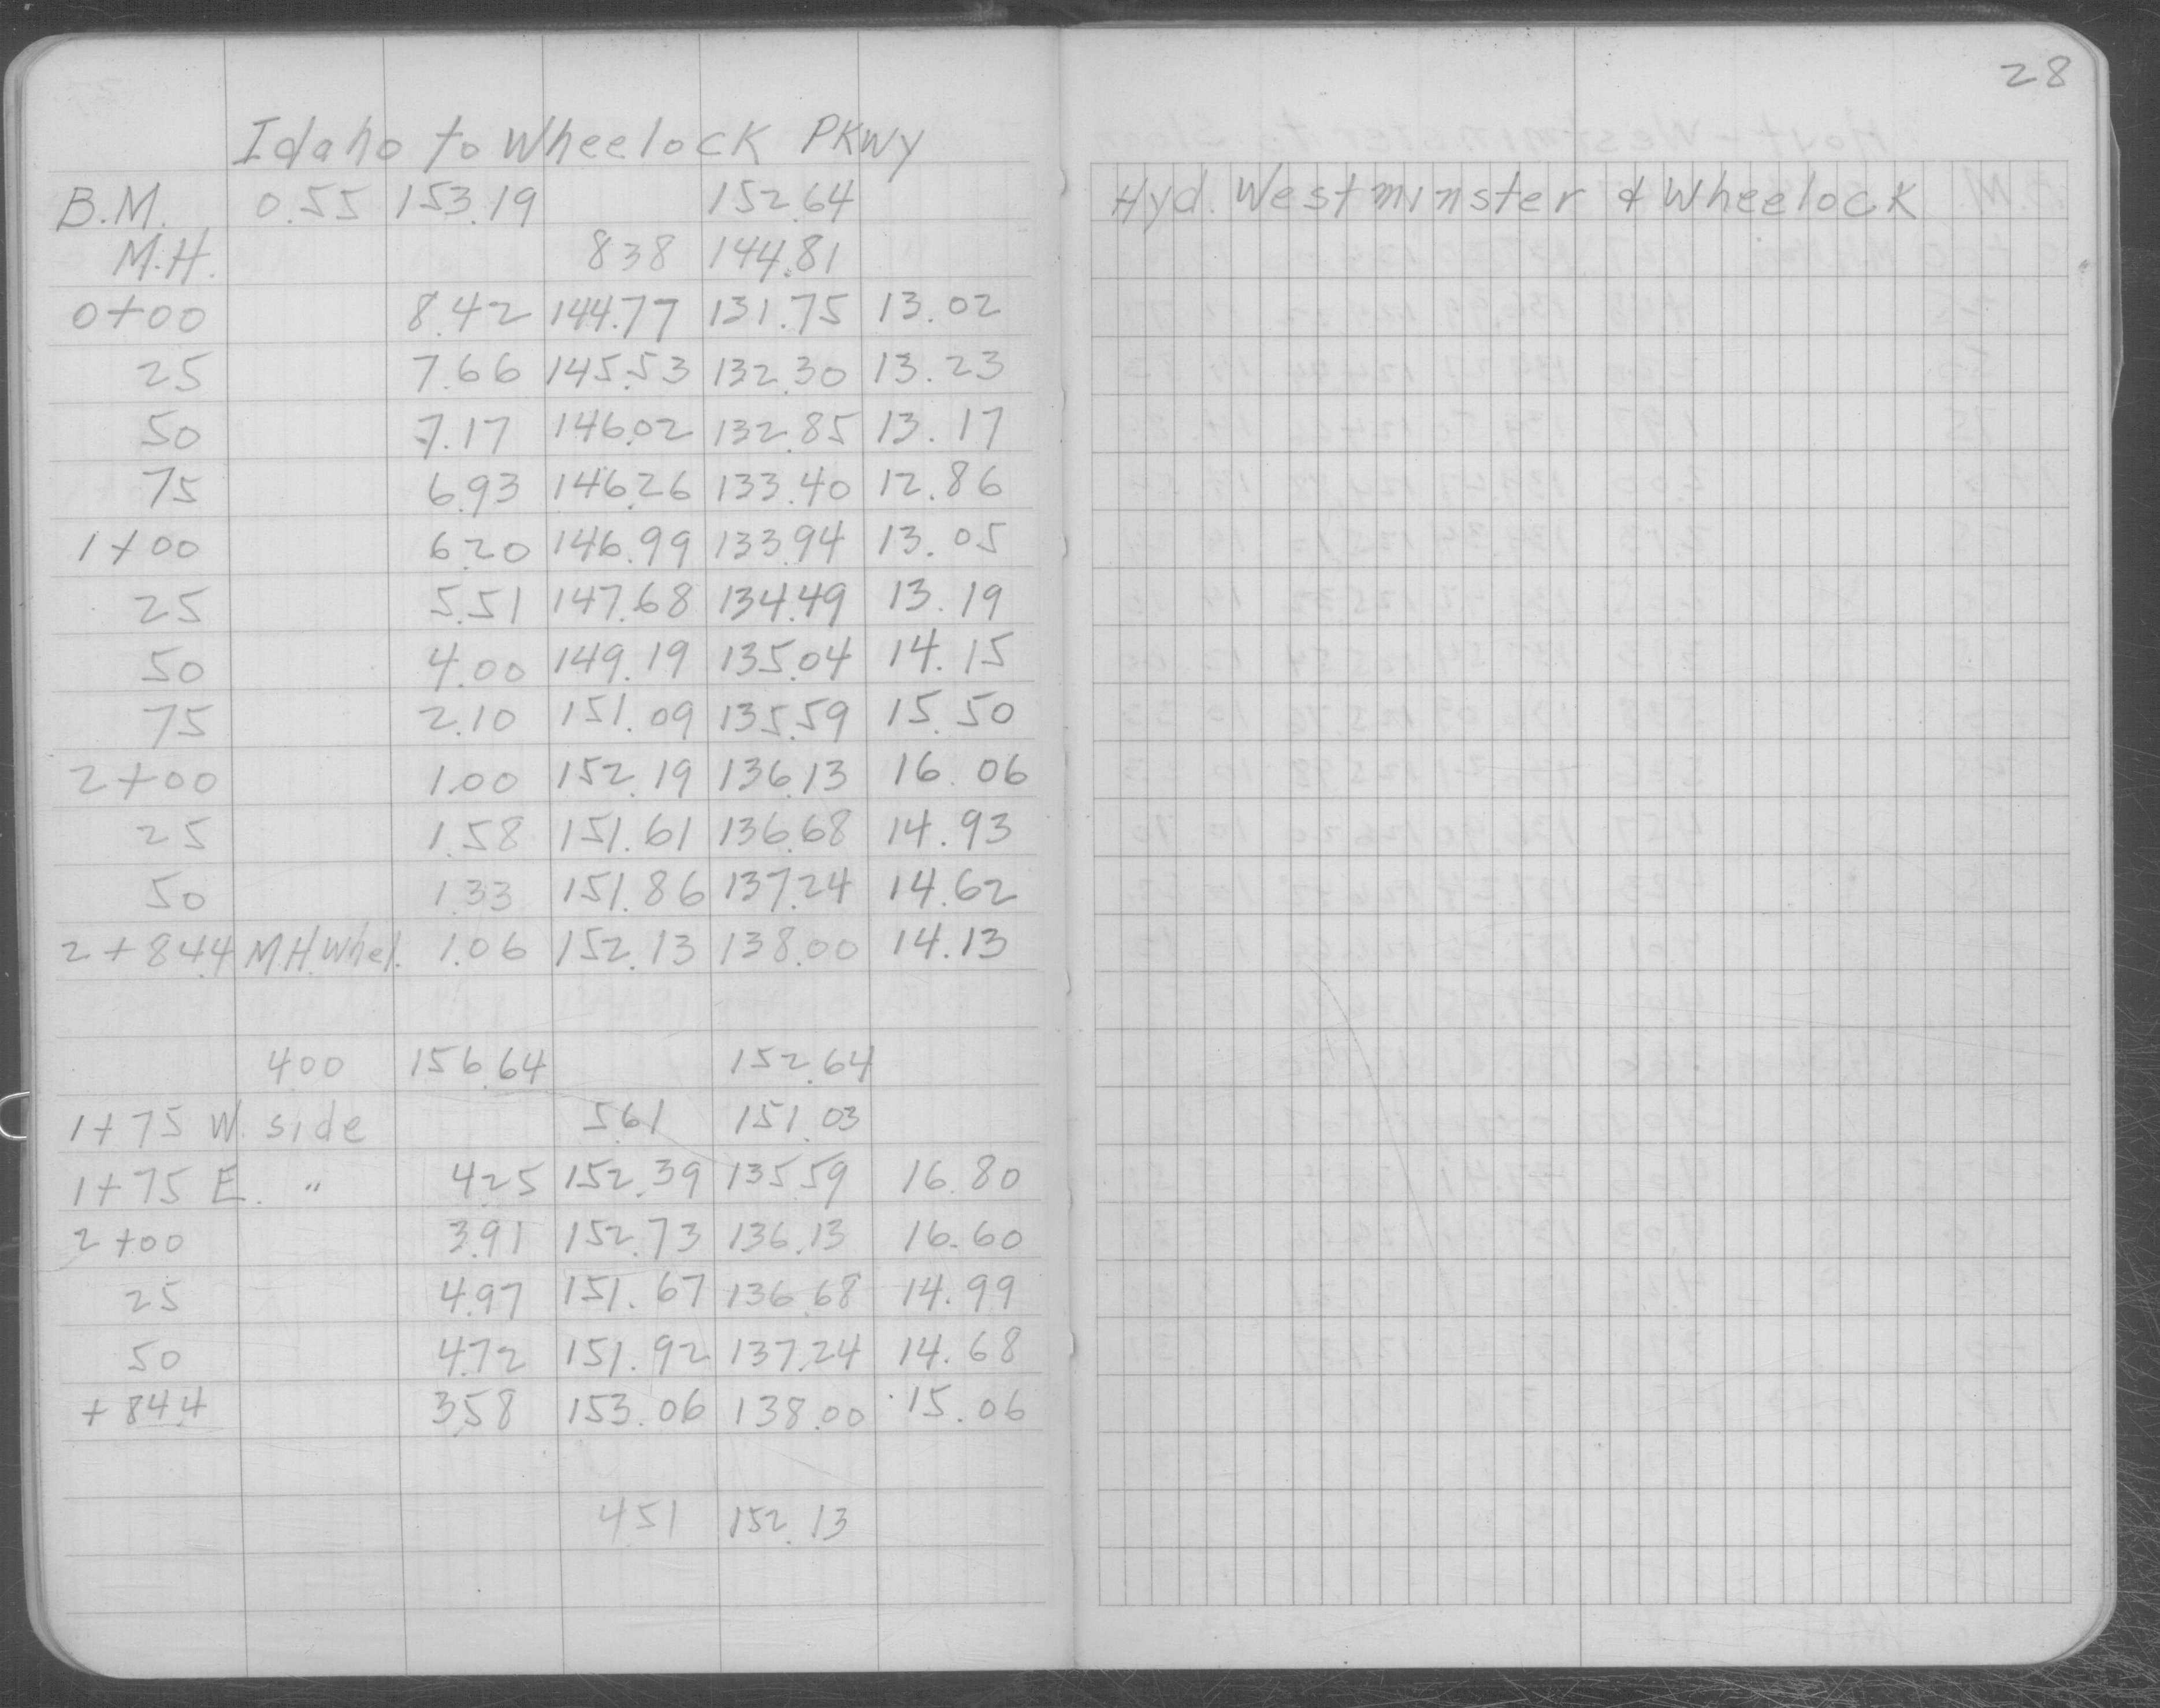 28
Idaho to Wheelock PKWY
B.M. 0.55 153.19 152.64
M.H. 838 144.81
0+00 8.42 144.77 131.75 13.02
25 7.66 145.53 132.30 13.23
50 7.17 146.02 132.85 13.17
75 6.93 146.26 133.40 12.86
1+00 6.20 146.99 133.94 13.05
25 5.51 147.68 134.49 13.19
50 4.00 149.19 135.04 14.15
75 2.10 151.09 135.59 15.50
2+00 1.00 152.19 136.13 16.06
25 1.58 151.61 136.68 14.93
50 1.33 151.86 137.24 14.62
2+84.4 M.H. Whel. 1.06 152.13 138.00 14.13
4.00 156.64 152.64
1+75 W. side 5.61 151.03
1+75 E. " 4.25 152.39 135.59 16.80
2+00 3.91 152.73 136.13 16.60
25 4.97 151.67 136.68 14.99
50 4.72 151.92 137.24 14.68
+84.4 3.58 153.06 138.00 15.06
4.51 152.13
Hyd. Westminster & Wheelock